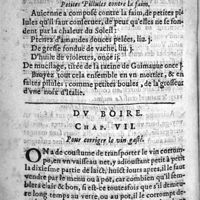 Petites Pillules contre la faim.
Auicenne a composé contre la faim, de petites pil
lules qu'il faut conseruer, de peur qu'elles ne se fon
dent par la chaleur du Soleil:
Prenez d'amandes douces pelées, liu. j.
De gresse fondue de vache, liu. j.
D'huile de violettes, once ij.
De mucilage, tiré de la racine de Guimauue once j.
Broyez tout cela ensemble en vn mortier, & en
faites pillules, comme petites boules, de la grosseur
d'vne noix
DV BOIRE.
CHAP. VII.
Pour corriger le vin gasté.
ON a de coustume de transporter le vin corrom-
pu, en vn vaisseau net, y adioustant petit à petit
la dixiesme partie de laict, huict iours apres, il le faut
remuer dans le mesme muid ou pot, car combien qu'il
semble clair & bon, si est-ce toutesfois que